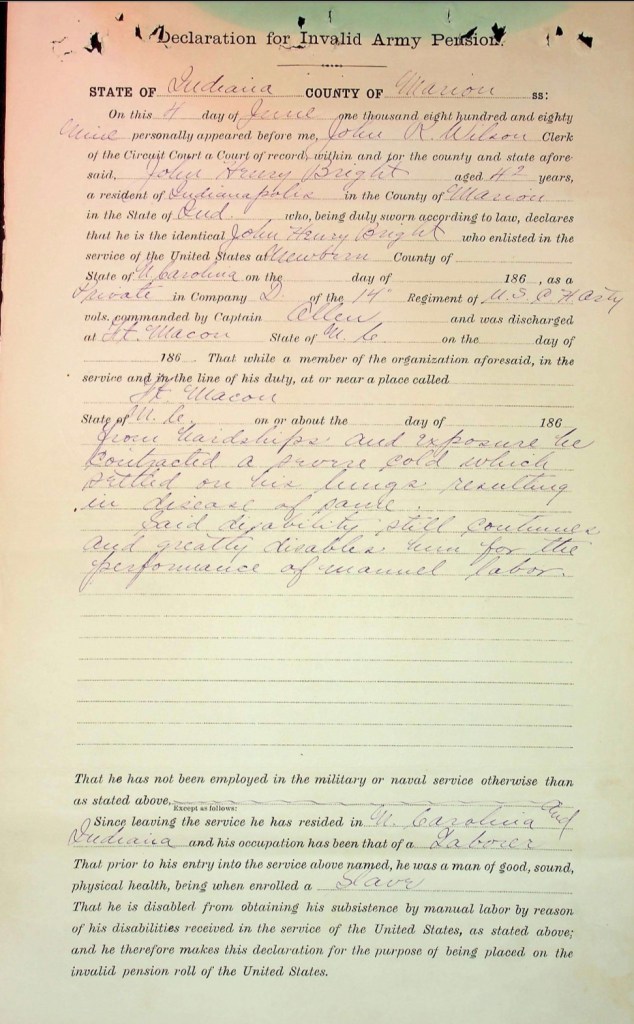 Declaration for Invalid Army Pension.
STATE OF Indiana COUNTY OF Marion ss:
On this 4 day of June one thousand eight hundred and eighty
Nine personally appeared before me, John R. Wilson Clerk
of the Circuit Court a Court of record, within and for the county and state afore-
said, John Henry Bright aged 42 years,
a resident of Indianapolis in the County of Marion
in the State of Ind. who, being duly sworn according to law, declares
that he is the identical John Henry Bright who enlisted in the
service of the United States at Newbern County of
State of N. Carolina on the day of 186 , as a
Private in Company D of the 14" Regiment of U.S.C H Arty
vols. commanded by Captain Ellen and was discharged
at Ft. Macon State of N. C. on the day of
186 . That while a member of the organization aforesaid, in the
service and in the line of his duty, at or near a place called
Ft. Macon
State of N. C. on or about the day of 186
from hardships and exposure he
contracted a severe cold which
settled on his lungs resulting
in disease of same.
Said disability still continues
and greatly disables him for the
performance of manuel labor.
That he has not been employed in the military or naval service otherwise than
as stated above,
Except as follows:
Since leaving the service he has resided in N. Carolina and
Indiana and his occupation has been that of a Laborer
That prior to his entry into the service above named, he was a man of good, sound,
physical health, being when enrolled a Slave
That he is disabled from obtaining his subsistence by manual labor by reason
of his disabilities received in the service of the United States, as stated above;
and he therefore makes this declaration for the purpose of being placed on the
invalid pension roll of the United States.